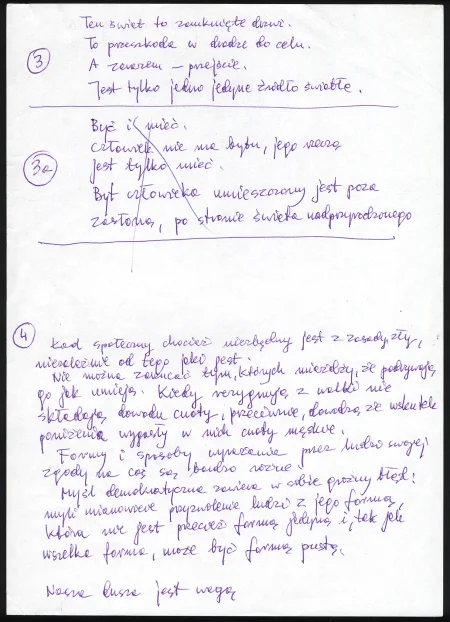 3
Ten świat to zamknięte drzwi.
To przeszkoda w drodze do celu.
A zarazem – przejście.
Jest tylko jedno jedyne źródło światła.
3a
Być i mieć.
Człowiek nie ma bytu, jego rzeczą
jest tylko mieć.
Byt człowieka umieszczony jest poza
zasłoną, po stronie świata nadprzyrodzonego
4
Ład społeczny chociaż niezbędny jest z zasady zły,
niezależnie od tego jaki jest.
Nie można zarzucać tym, których miażdży, że podgryzają
go jak umieją. Kiedy rezygnują z walki nie
składają dowodu cnoty, przeciwnie, dowodzą, że wskutek
poniżenia wygasły w nich cnoty męskie.
Formy i sposoby wyrażania przez ludzi swojej
zgody na coś są bardzo różne.
Myśl demokratyczna zawiera w sobie groźny błąd:
myli mianowicie przyzwolenie ludzi z jego formą,
która nie jest przecież formą jedyną i, tak jak
wszelka forma, może być formą pustą.
Nasza dusza jest wagą